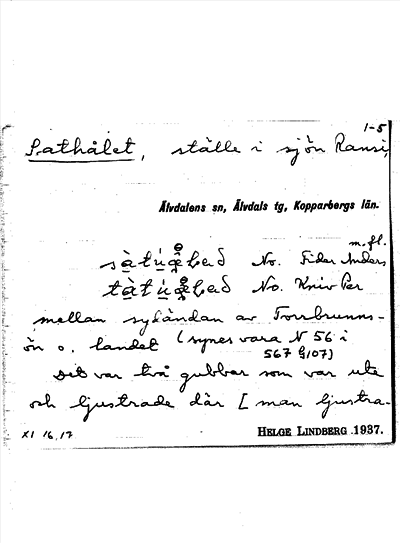 1-5
Sathålet, ställe i sjön Ransi,
Älvdalens sn, Älvdals tg, Kopparbergs län.
m. fl.
No. Fider Anders
No. Kniv Per
mellan sydändan av Torrbrunns-
ön o. landet (synes vara N 56 i
567 § 107)
Det var två gubbar som var ute
och ljustrade där [man ljustra-
XI 16, 17
HELGE LINDBERG 1937.